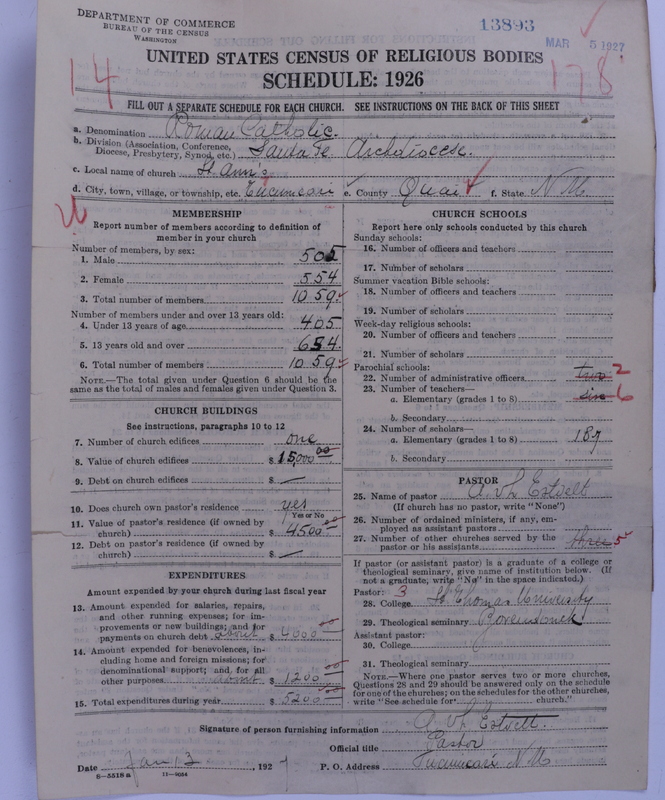 DEPARTMENT OF COMMERCE
BUREAU OF THE CENSUS
WASHINGTON
13893
MAR 5 1927
UNITED STATES CENSUS OF RELIGIOUS BODIES
SCHEDULE: 1926
14
178
FILL OUT A SEPARATE SCHEDULE FOR EACH CHURCH. SEE INSTRUCTIONS ON THE BACK OF THIS SHEET
a. Denomination Roman Catholic.
b. Division (Association, Conference, Diocese, Presbytery, Synod, etc.) Santa Fe Archdiocese.
c. Local name of church St. Ann's
d. City, town, village, or township, etc. Tucumcari e. County Quay f. State N M
MEMBERSHIP
Report number of members according to definition of
member in your church
Number of members, by sex:
1. Male 505
2. Female 554
3. Total number of members 1059
Number of members under and over 13 years old:
4. Under 13 years of age 405
5. 13 years old and over 654
6. Total number of members 1059
NOTE.—The total given under Question 6 should be the
same as the total of males and females given under Question 3.
CHURCH BUILDINGS
See instructions, paragraphs 10 to 12
7. Number of church edifices one
8. Value of church edifices $ 15,000 00
9. Debt on church edifices $ —
10. Does church own pastor's residence yes
Yes or No
11. Value of pastor's residence (if owned by
church) $ 4500 00
12. Debt on pastor's residence (if owned by
church) $ —
EXPENDITURES
Amount expended by your church during last fiscal year
13. Amount expended for salaries, repairs,
and other running expenses; for im-
provements or new buildings; and for
payments on church debt about $ 4000 00
14. Amount expended for benevolences, in-
cluding home and foreign missions; for
denominational support; and for all
other purposes about $ 1200 00
15. Total expenditures during year $ 5200 00
CHURCH SCHOOLS
Report here only schools conducted by this church
Sunday schools:
16. Number of officers and teachers
17. Number of scholars
Summer vacation Bible schools:
18. Number of officers and teachers
19. Number of scholars
Week-day religious schools:
20. Number of officers and teachers
21. Number of scholars
Parochial schools:
22. Number of administrative officers two 2
23. Number of teachers—
a. Elementary (grades 1 to 8) six 6
b. Secondary
24. Number of scholars—
a. Elementary (grades 1 to 8) 187
b. Secondary
PASTOR
25. Name of pastor
(If church has no pastor, write "None")
26. Number of ordained ministers, if any, em-
ployed as assistant pastors
27. Number of other churches served by the
pastor or his assistants three 5
If pastor (or assistant pastor) is a graduate of a college or
theological seminary, give name of institution below. (If
not a graduate, write "No" in the space indicated.)
Pastor: 3
28. College St Thomas University
29. Theological seminary
Assistant pastor:
30. College
31. Theological seminary
NOTE.—Where one pastor serves two or more churches,
Questions 28 and 29 should be answered only on the schedule
for one of the churches; on the schedules for the other churches,
write "See schedule for church."
Signature of person furnishing information
Official title Pastor
Date Jan 13, 1927
P. O. Address Tucumcari N M
8-5518 a
11-9056